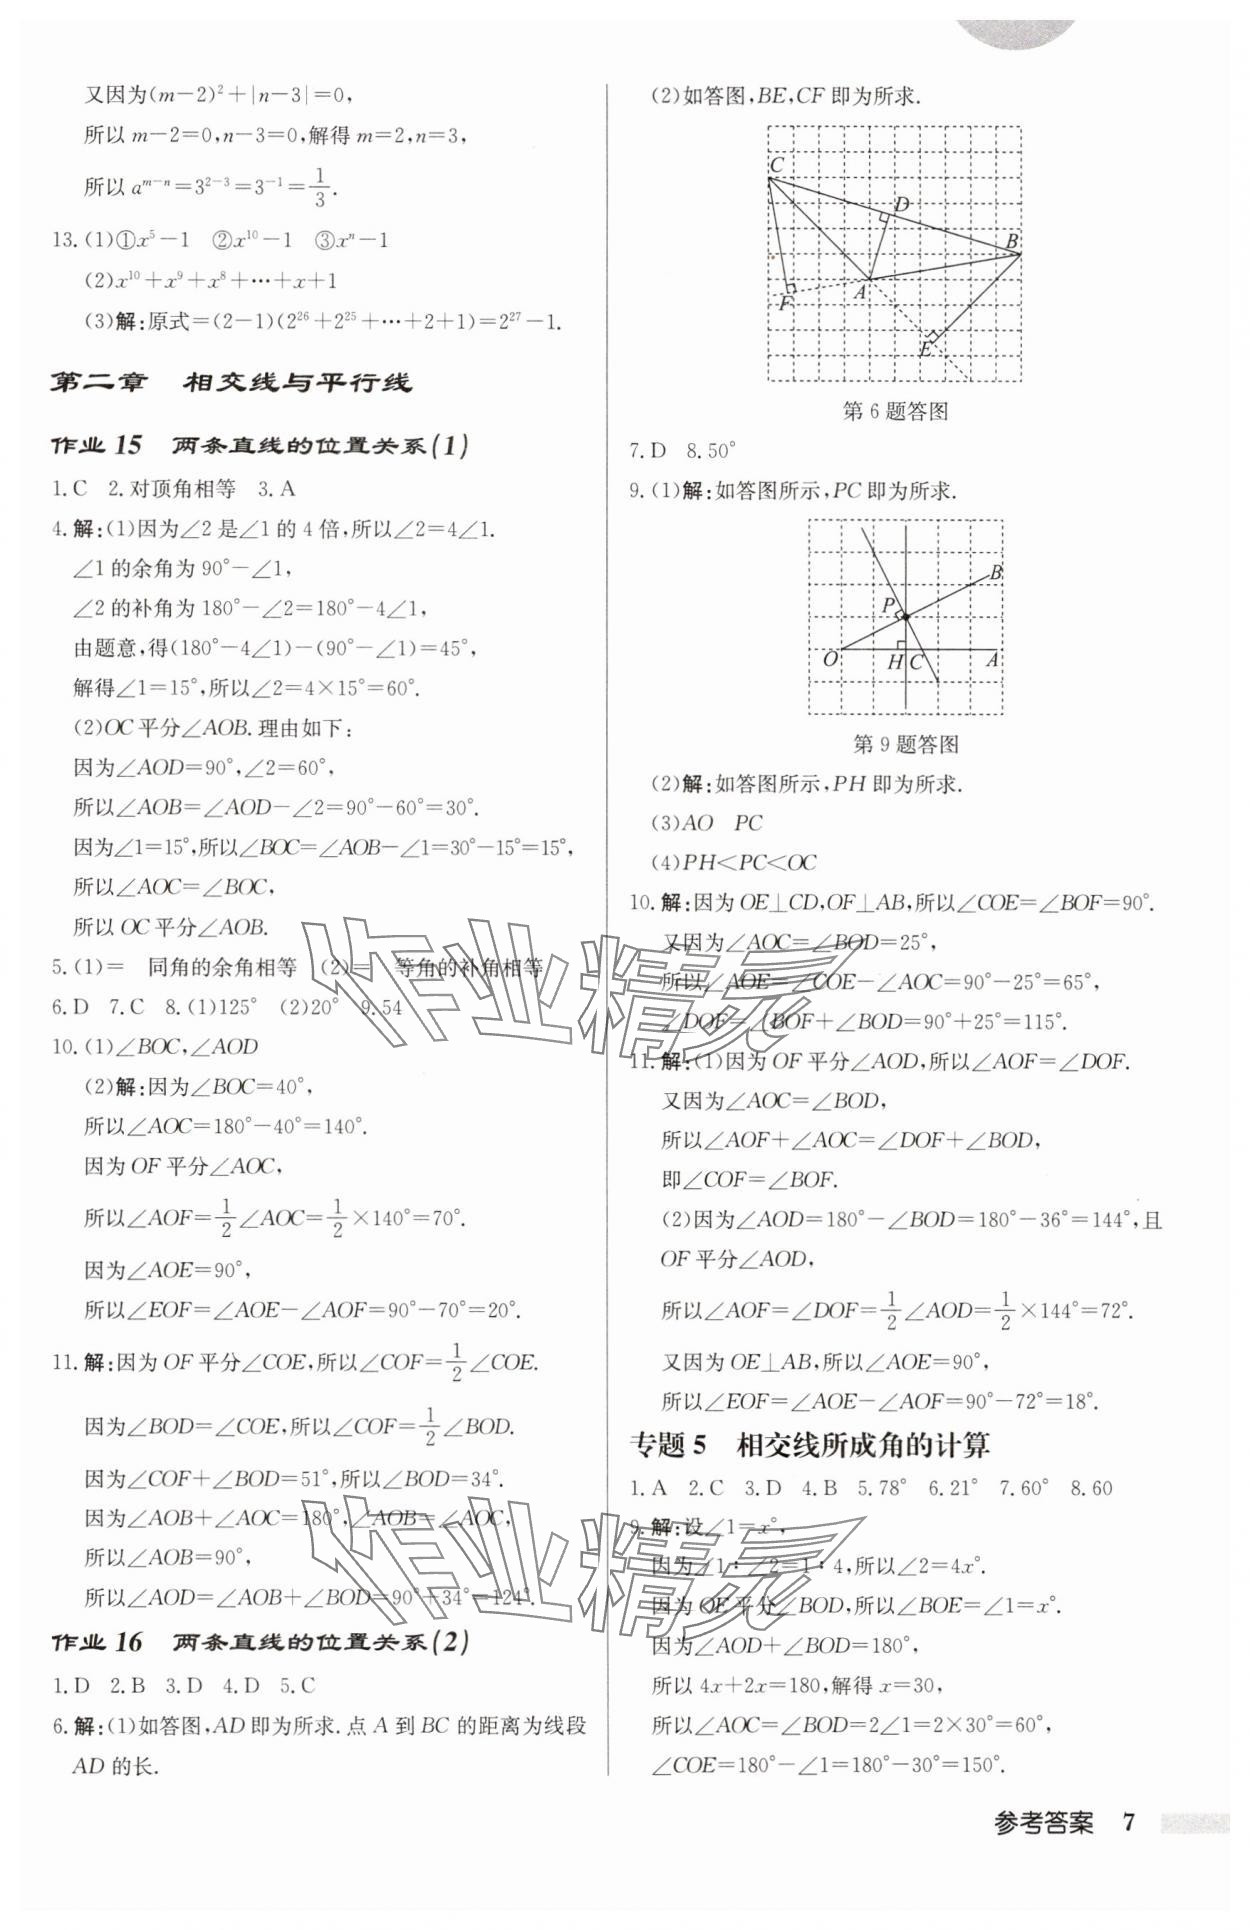 又因为(m－2)²＋|n－3|＝0,
所以 m－2＝0,n－3＝0,解得 m＝2,n＝3,
所以 aᵐ⁻ⁿ＝3²⁻³＝3⁻¹＝1/3.
13.(1)①x⁵－1 ②x¹⁰－1 ③xⁿ－1
(2)x¹⁰＋x⁹＋x⁸＋…＋x＋1
(3)解:原式＝(2－1)(2²⁶＋2²⁵＋…＋2＋1)＝2²⁷－1.
第二章 相交线与平行线
作业 15 两条直线的位置关系(1)
1.C 2.对顶角相等 3.A
4.解:(1)因为∠2 是∠1 的 4 倍,所以∠2＝4∠1.
∠1 的余角为 90°－∠1,
∠2 的补角为 180°－∠2＝180°－4∠1,
由题意,得(180°－4∠1)－(90°－∠1)＝45°,
解得∠1＝15°,所以∠2＝4×15°＝60°.
(2)OC 平分∠AOB.理由如下:
因为∠AOD＝90°,∠2＝60°,
所以∠AOB＝∠AOD－∠2＝90°－60°＝30°.
因为∠1＝15°,所以∠BOC＝∠AOB－∠1＝30°－15°＝15°,
所以∠AOC＝∠BOC,
所以 OC 平分∠AOB.
5.(1)＝ 同角的余角相等 (2)＝ 等角的补角相等
6.D 7.C 8.(1)125° (2)20° 9.54
10.(1)∠BOC,∠AOD
(2)解:因为∠BOC＝40°,
所以∠AOC＝180°－40°＝140°.
因为 OF 平分∠AOC,
所以∠AOF＝1/2∠AOC＝1/2×140°＝70°.
因为∠AOE＝90°,
所以∠EOF＝∠AOE－∠AOF＝90°－70°＝20°.
11.解:因为 OF 平分∠COE,所以∠COF＝1/2∠COE.
因为∠BOD＝∠COE,所以∠COF＝1/2∠BOD.
因为∠COF＋∠BOD＝51°,所以∠BOD＝34°.
因为∠AOB＋∠AOC＝180°,∠AOB＝∠AOC,
所以∠AOB＝90°,
所以∠AOD＝∠AOB＋∠BOD＝90°＋34°＝124°.
作业 16 两条直线的位置关系(2)
1.D 2.B 3.D 4.D 5.C
6.解:(1)如答图,AD 即为所求.点 A 到 BC 的距离为线段
AD 的长.
(2)如答图,BE,CF 即为所求.
C
D
B
F
A
E
第 6 题答图
7.D 8.50°
9.(1)解:如答图所示,PC 即为所求.
B
P
O
H
C
A
第 9 题答图
(2)解:如答图所示,PH 即为所求.
(3)AO PC
(4)PH＜PC＜OC
10.解:因为 OE⊥CD,OF⊥AB,所以∠COE＝∠BOF＝90°.
又因为∠AOC＝∠BOD＝25°,
所以∠AOE＝∠COE－∠AOC＝90°－25°＝65°,
∠DOF＝∠BOF＋∠BOD＝90°＋25°＝115°.
11.解:(1)因为 OF 平分∠AOD,所以∠AOF＝∠DOF.
又因为∠AOC＝∠BOD,
所以∠AOF＋∠AOC＝∠DOF＋∠BOD,
即∠COF＝∠BOF.
(2)因为∠AOD＝180°－∠BOD＝180°－36°＝144°,且
OF 平分∠AOD,
所以∠AOF＝∠DOF＝1/2∠AOD＝1/2×144°＝72°.
又因为 OE⊥AB,所以∠AOE＝90°,
所以∠EOF＝∠AOE－∠AOF＝90°－72°＝18°.
专题 5 相交线所成角的计算
1.A 2.C 3.D 4.B 5.78° 6.21° 7.60° 8.60
9.解:设∠1＝x°,
因为∠1∶∠2＝1∶4,所以∠2＝4x°.
因为 OE 平分∠BOD,所以∠BOE＝∠1＝x°.
因为∠AOD＋∠BOD＝180°,
所以 4x＋2x＝180,解得 x＝30,
所以∠AOC＝∠BOD＝2∠1＝2×30°＝60°,
∠COE＝180°－∠1＝180°－30°＝150°.
作业精灵
作业精灵
参考答案 7